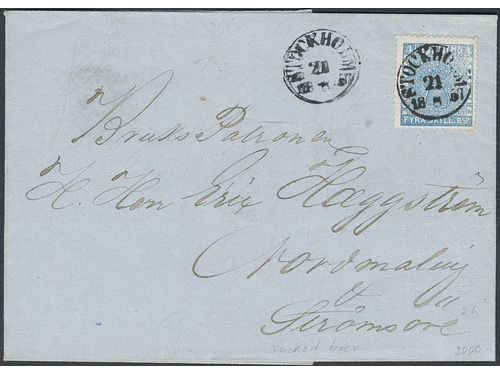 STOCKHOLM
21
STOCKHOLM
21
FYRA SKILL. Bco
Bruks Patronen
H. Herr Eric Häggström
Nordmaling
&
Strömsöre
vackert brev
3000-